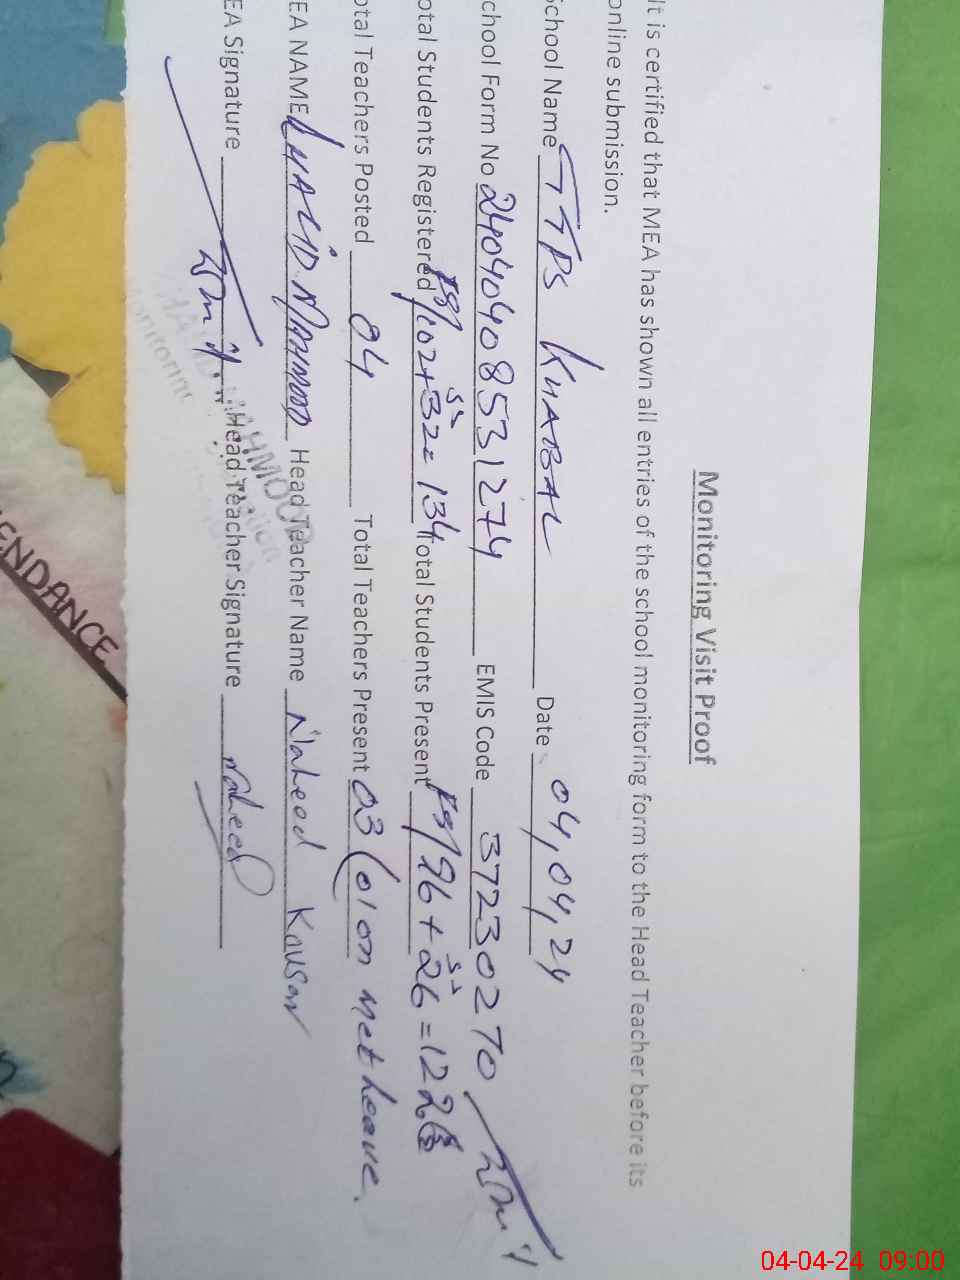 Monitoring Visit Proof
It is certified that MEA has shown all entries of the school monitoring form to the Head Teacher before its
online submission.
School Name GGPS KHABAL Date 04,04,24
chool Form No 24040408531274 EMIS Code 37230270
otal Students Registered 102+32= 134 Total Students Present 96+26=122
otal Teachers Posted 04 Total Teachers Present 03 (01 on met leave.
EA NAME KHALID MAHMOOD Head Teacher Name Naheed Kausar
EA Signature Head Teacher Signature Naheed
MAHMOOD
ENDANCE
04-04-24 09:00